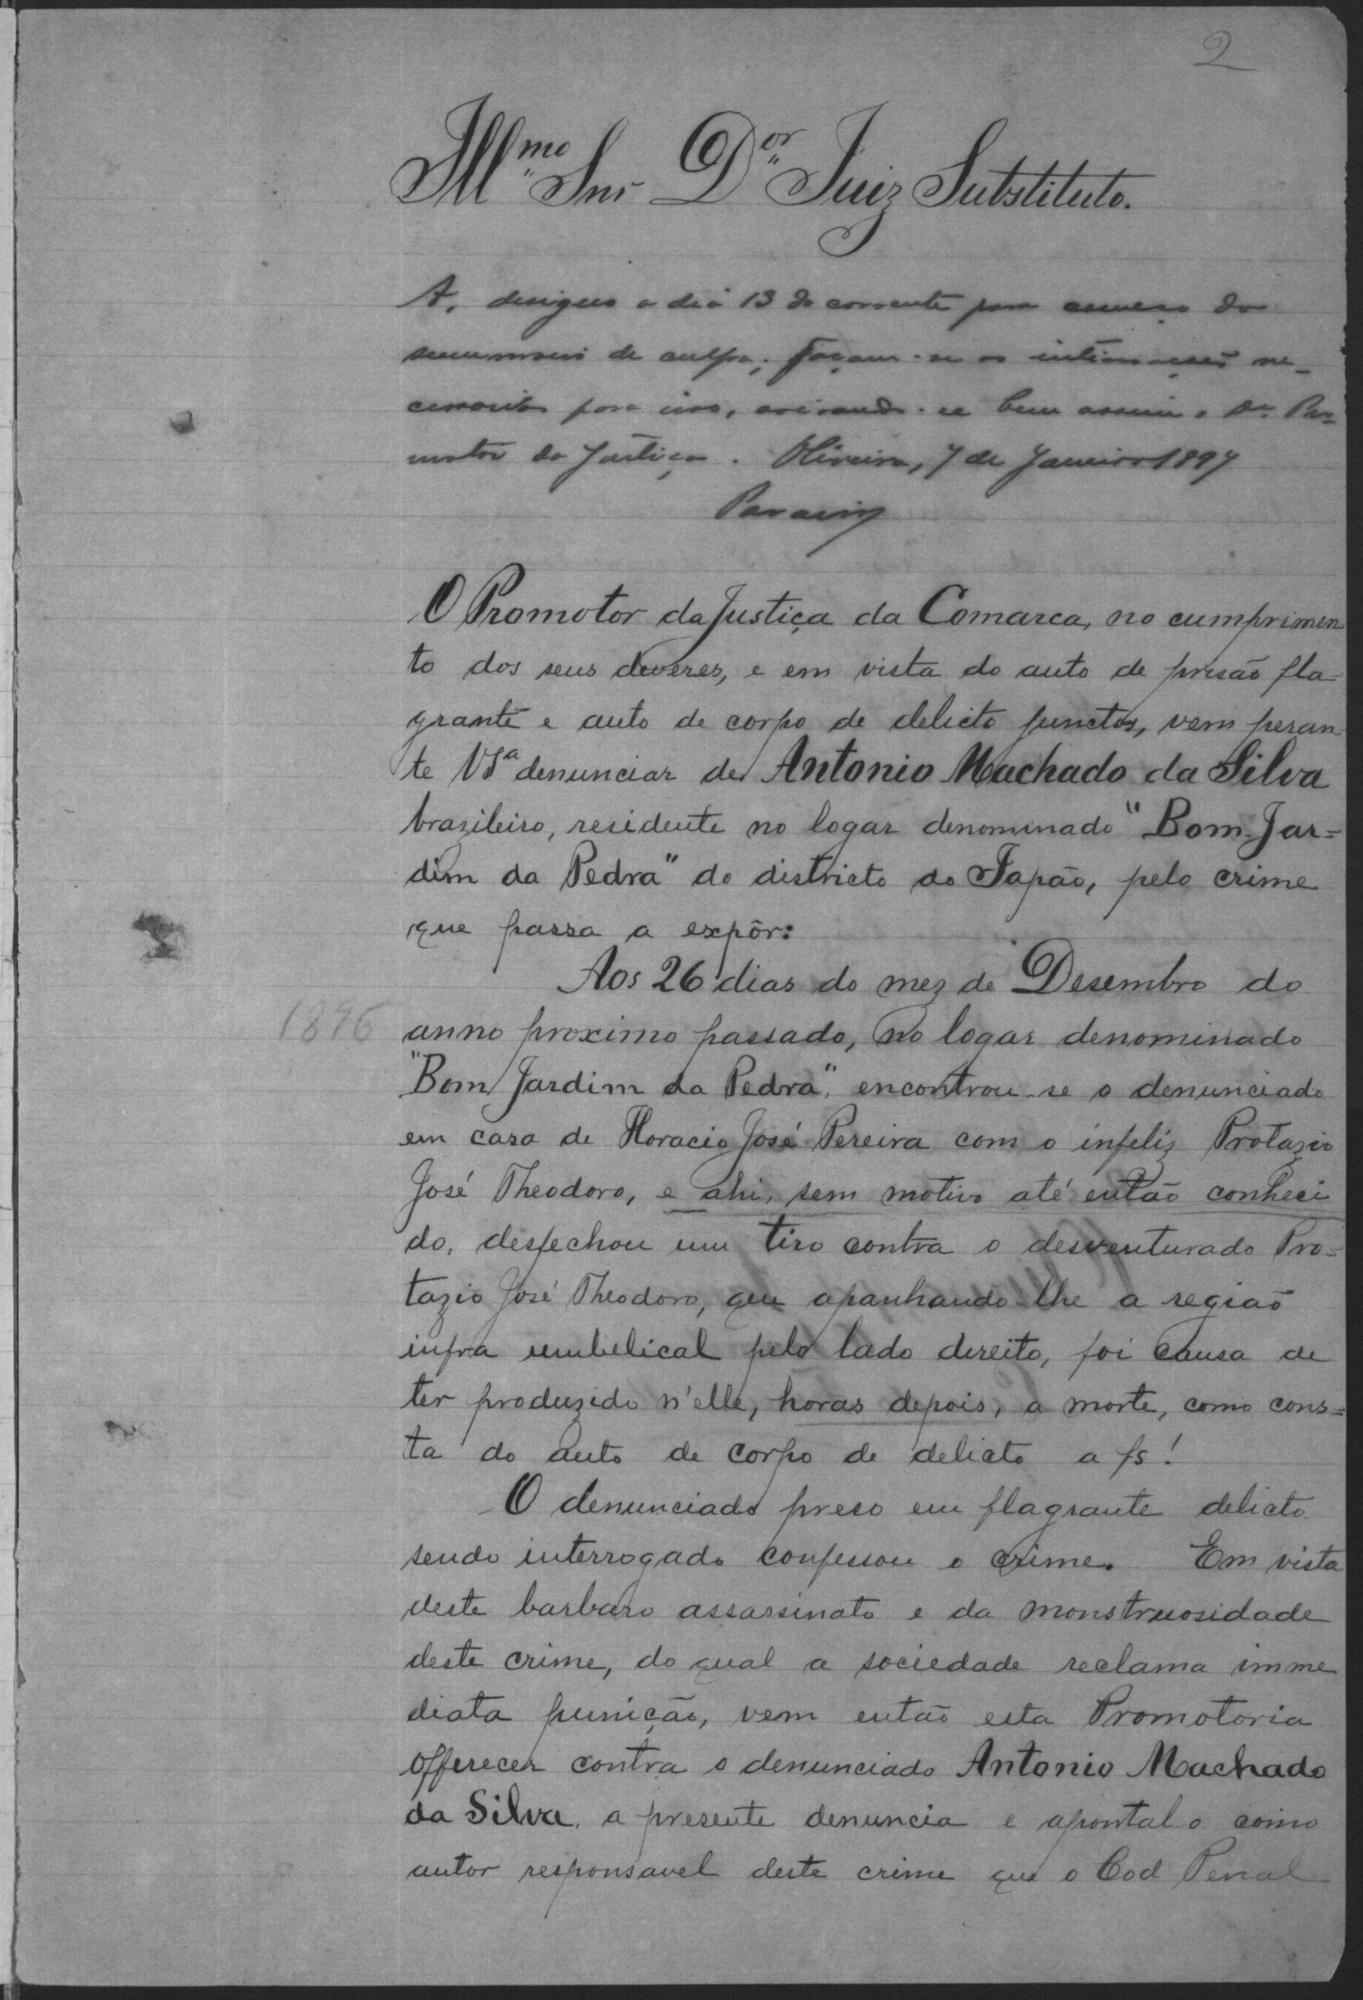 2
Ill.mo Snr Dor Juiz Substituto.
A. designo o dia 13 do corrente para começo do
summario de culpa; façam-se as intimações ne-
cessarias para isso, avisando-se bem assim o Dr. Pro-
motor da Justiça. Oliveira, 7 de Janeiro 1897
O Promotor da Justiça da Comarca, no cumprimen-
to dos seus deveres, e em vista do auto de prisão fla-
grante e auto de corpo de delicto junctos, vem peran-
te VSa denunciar de Antonio Machado da Silva
brazileiro, residente no logar denominado "Bom Jar=
dim da Pedra" do districto do Japão, pelo crime
que passa a expôr:
Aos 26 dias do mez de Desembro do
1896
anno proximo passado, no logar denominado
"Bom Jardim da Pedra", encontrou-se o denunciado
em casa de Horacio José Pereira com o infeliz Protazio
José Theodoro, e ahi, sem motivo até então conheci
do, desfechou um tiro contra o desventurado Pro=
tazio José Theodoro, que apanhando-lhe a região
infra umbelical pelo lado dereito, foi causa de
ter produzido n'elle, horas depois, a morte, como cons=
ta do auto de corpo de delicto a fs!
O denunciado preso em flagrante delicto
sendo interrogado confessou o crime. Em vista
deste barbaro assassinato e da monstruosidade
deste crime, do qual a sociedade reclama imme
diata punição, vem então esta Promotoria
offerecer contra o denunciado Antonio Machado
da Silva, a presente denuncia e apontal-o como
autor responsavel deste crime que o Cod Penal